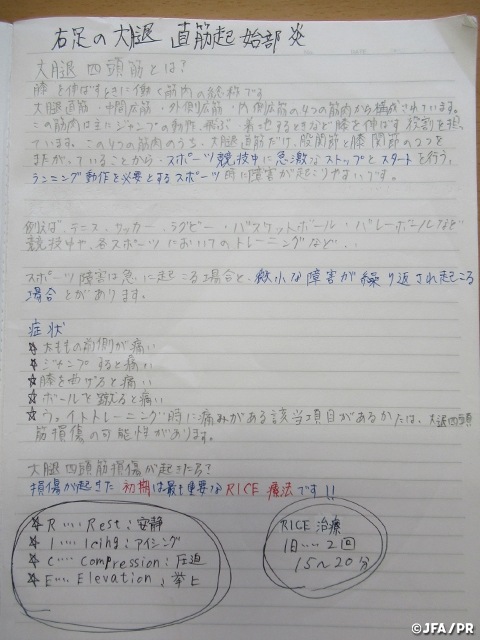 右足の大腿直筋起始部炎
大腿四頭筋とは?
膝を伸ばすときに働く筋肉の総称です
大腿直筋・中間広筋・外側広筋・内側広筋の4つの筋肉から構成されています。
この筋肉は主にジャンプの動作、飛ぶ・着地するときなど膝を伸ばす役割を担っ
ています。この4つの筋肉のうち、大腿直筋だけ、股関節と膝関節の2つを
またがっていることから、スポーツ競技中に急激なストップとスタートを行う。
ランニング動作を必要とするスポーツ時に障害が起こりやすいです。
例えば、テニス・サッカー・ラグビー・バスケットボール・バレーボールなど
競技中や、各スポーツにおいてのトレーニングなど・・
スポーツ障害は急に起こる場合と、微小な障害が繰り返され起こる
場合とがあります。
症状
☆太ももの前側が痛い
☆ジャンプすると痛い
☆膝を曲げると痛い
☆ボールを蹴ると痛い
☆ウェイトトレーニング時に痛みがある該当項目があるかたは、大腿四頭
筋損傷の可能性があります。
大腿四頭筋損傷が起きたら?
損傷が起きた初期は最も重要なRICE療法です!!
☆R・・・・Rest:安静
☆I・・・・Icing:アイシング
☆C・・・・Compression:圧迫
☆E・・・・Elevation:挙上
RICE治療
1日・・・・2回
15〜20分
©JFA/PR